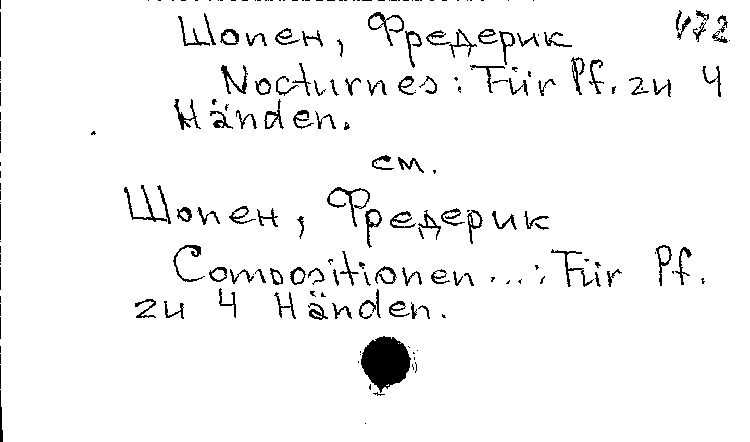 Шопен, Фредерик 472
Nocturnes: Für Pf. zu 4
Händen.
см.
Шопен, Фредерик
Compositionen ...: Für Pf.
zu 4 Händen.